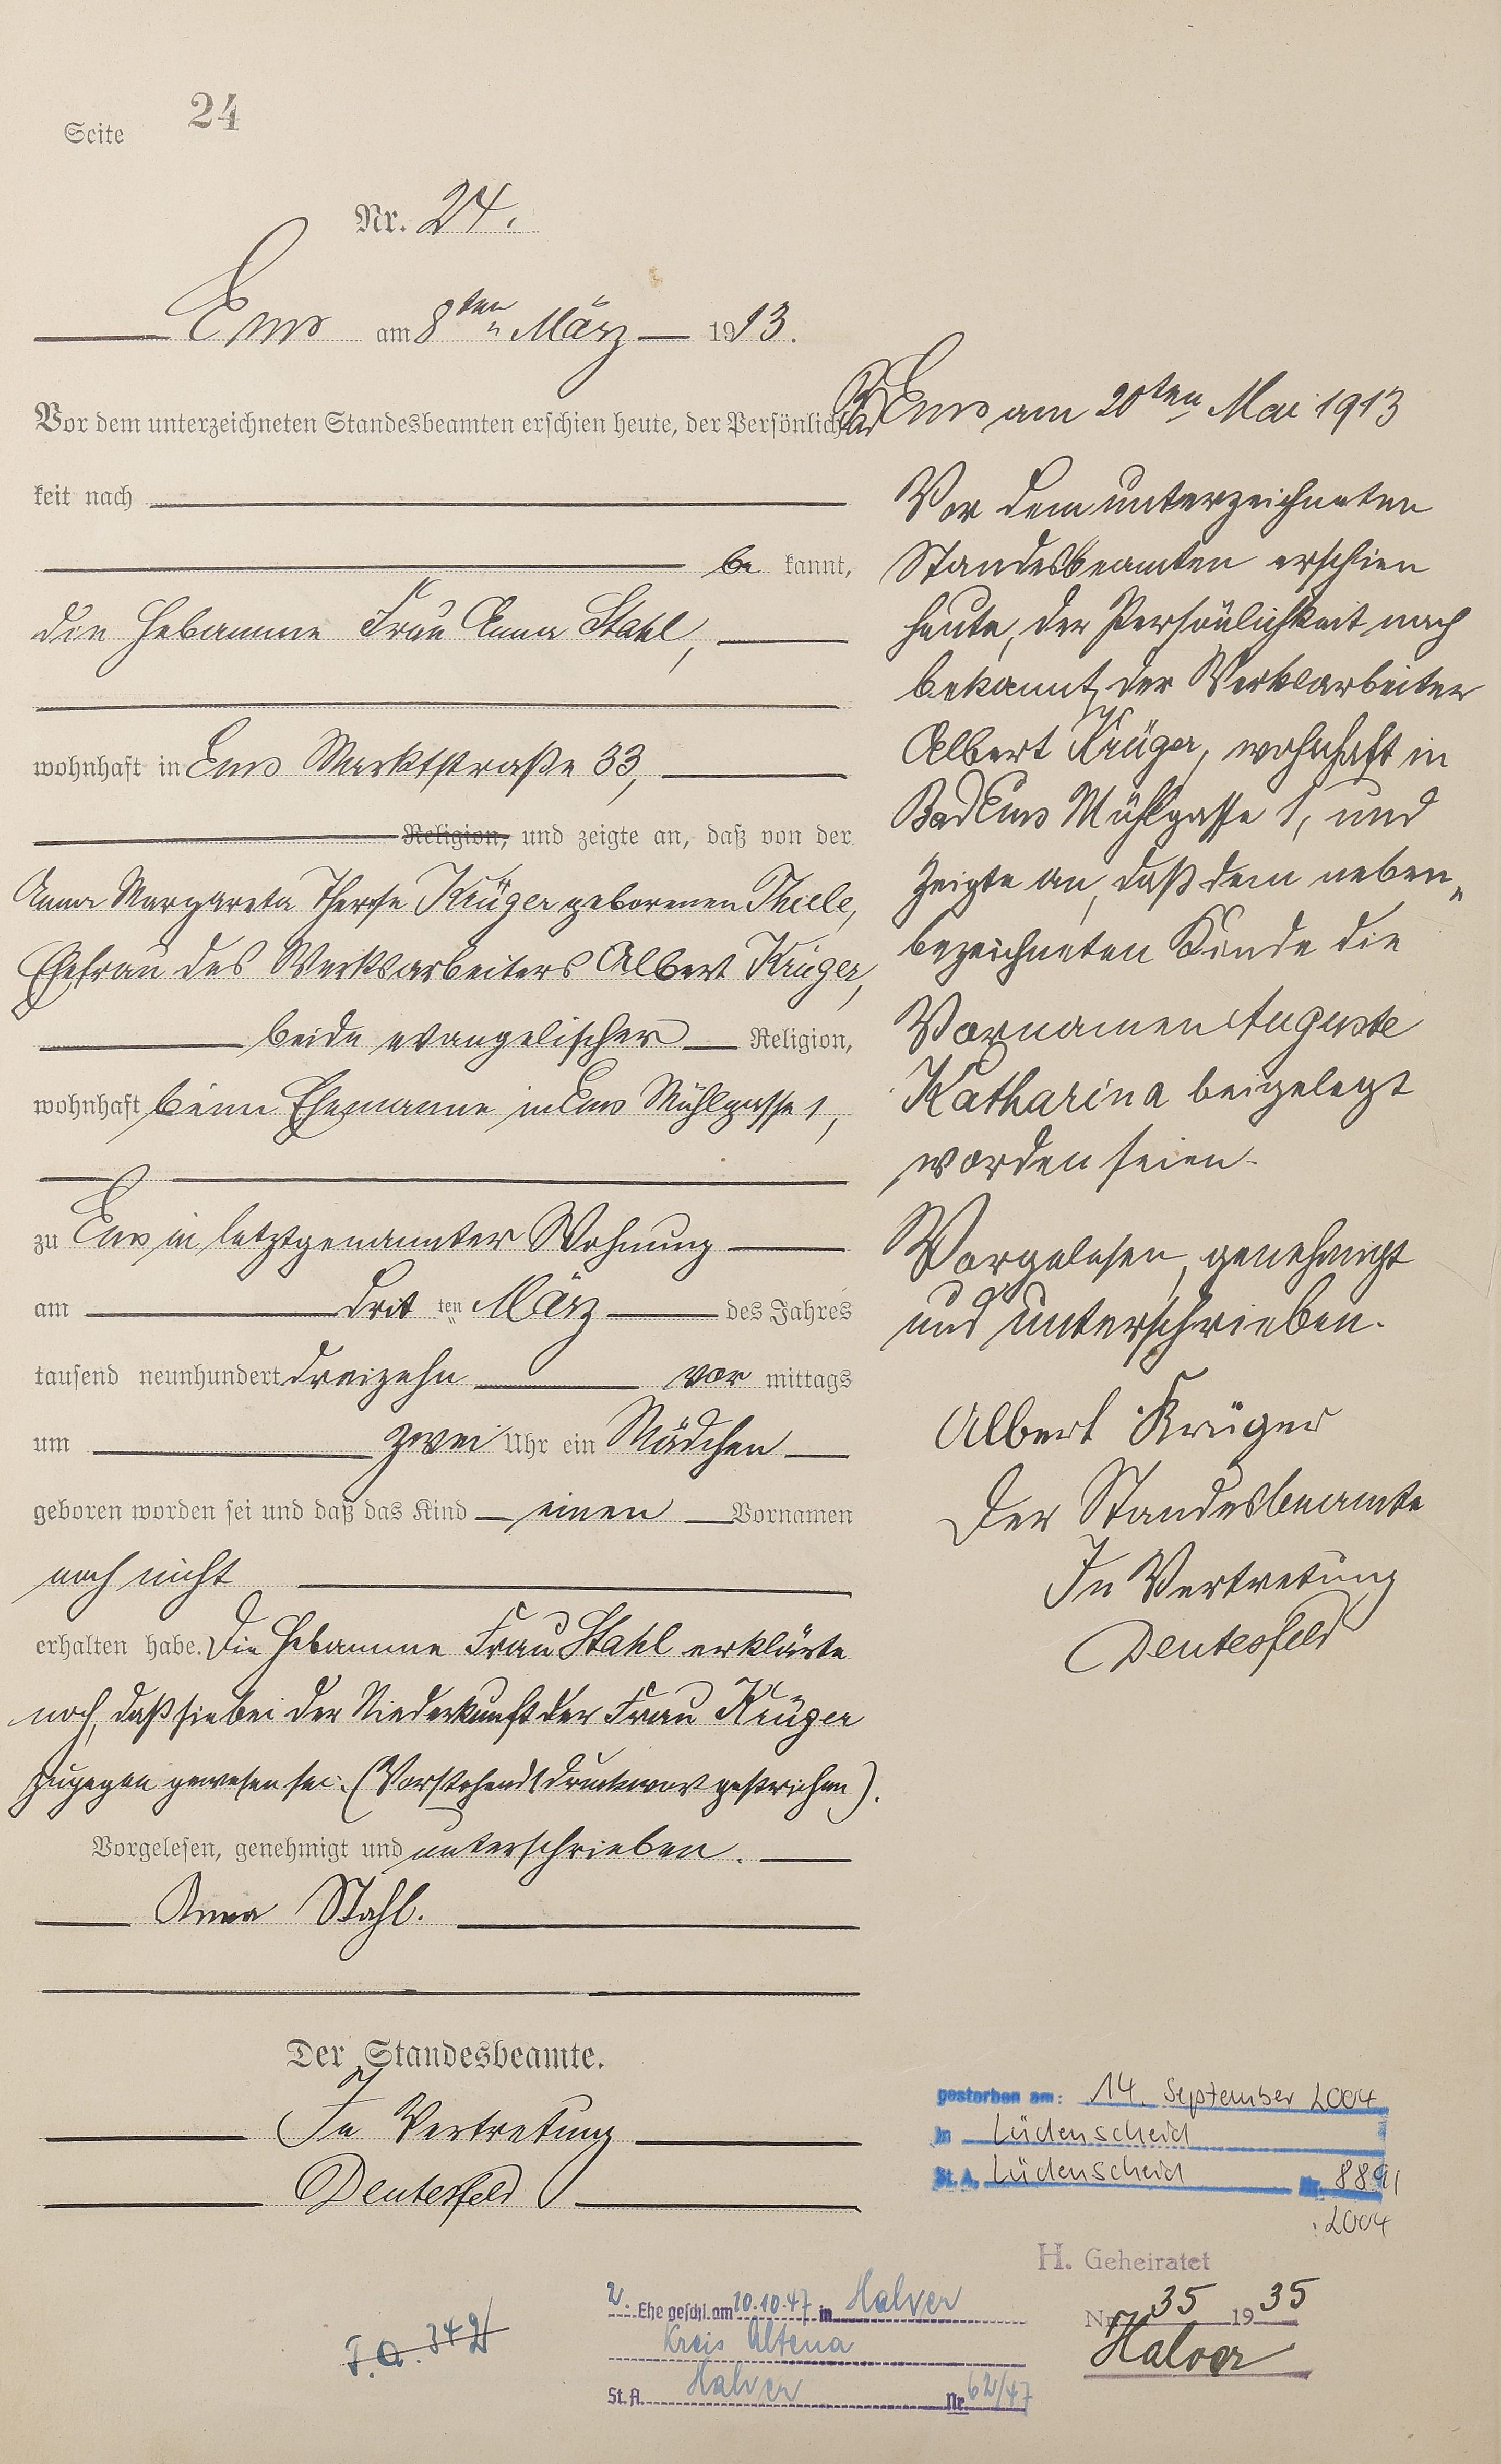 Seite 24
Nr. 24.
Ems am 8ten März 1913.
Vor dem unterzeichneten Standesbeamten erschien heute, der Persönlich-
keit nach
be kannt,
die Hebamme Frau Anna Stahl,
wohnhaft in Ems Marktstraße 33,
Religion, und zeigte an, daß von der
Anna Margareta Therese Krüger geborenen Thiele,
Ehefrau des Werksarbeiters Albert Krüger,
beide evangelischer Religion,
wohnhaft beim Ehemanne in Ems Mühlgasse 1,
zu Ems in letztgenannter Wohnung
am dritten März des Jahres
tausend neunhundert dreizehn vor mittags
um zwei Uhr ein Mädchen
geboren worden sei und daß das Kind einen Vornamen
noch nicht
erhalten habe. Die Hebamme Frau Stahl erklärte
noch, daß sie bei der Niederkunft der Frau Krüger
zugegen gewesen sei. (Vorstehend 1 Druckwort gestrichen).
Vorgelesen, genehmigt und unterschrieben.
Anna Stahl.
Der Standesbeamte.
In Vertretung
Deutesfeld
Ems am 20ten Mai 1913
Vor dem unterzeichneten
Standesbeamten erschien
heute, der Persönlichkeit nach
bekannt, der Werksarbeiter
Albert Krüger, wohnhaft in
Bad Ems Mühlgasse 1, und
zeigte an, daß dem neben-
bezeichneten Kinde die
Vornamen Auguste
Katharina beigelegt
worden seien.
Vorgelesen, genehmigt
und unterschrieben.
Albert Krüger
Der Standesbeamte
In Vertretung
Deutesfeld
gestorben am: 14. September 2004
in Lüdenscheid
St. A. Lüdenscheid Nr. 889/
2004
H. Geheiratet
Nr. 35 1935
Halver
2. Ehe geschl. am 10.10.47 in Halver
Kreis Altena
St. A. Halver Nr. 62/47